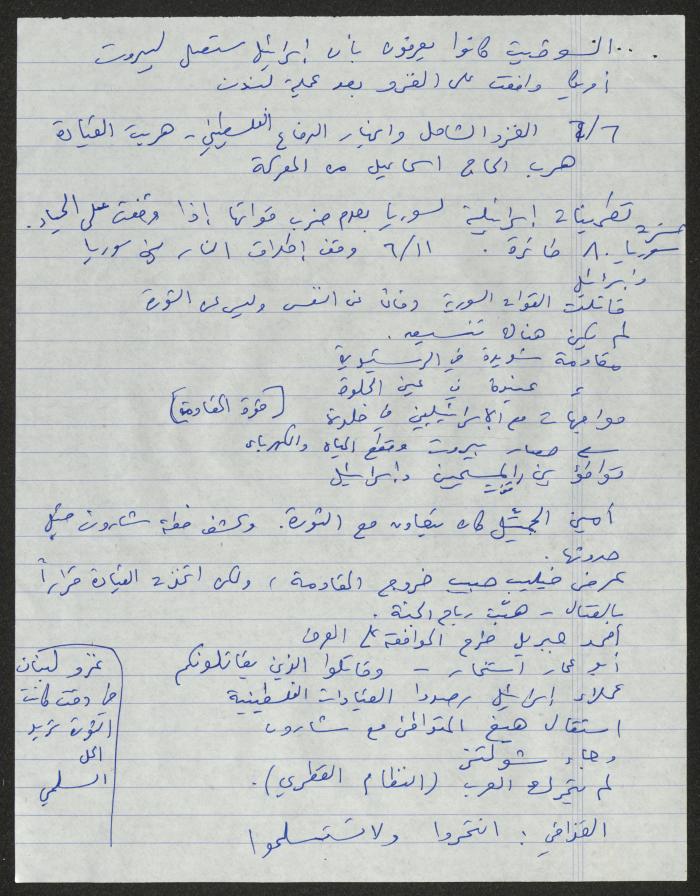 ... السوفيت كانوا يعرفون بأن إسرائيل ستصل لبيروت
أمريكا وافقت على الغزو بعد عملية لندن
٦/٦ الغزو الشامل وانهيار الدفاع الفلسطيني - هربت القيادة
هرب الحاج اسماعيل من المعركة
تطمينات إسرائيلية لسوريا بعدم ضرب قواتها إذا وقفت على الحياد.
خسرت سوريا ٨٠ طائرة. ٦/١١ وقف إطلاق النار بين سوريا
وإسرائيل
قاتلت القوات السورية دفاعاً عن النفس وليس عن الثورة
لم يكن هناك تنسيق.
مقاومة شديدة في الرشيدية
عنيدة في عين الحلوة
مواجهات مع الإسرائيليين في خلدة (قوة المقاومة)
حصار بيروت وقطع المياه والكهرباء
تواطؤ بين المسيحيين وإسرائيل
أمين الجميّل كان يتعاون مع الثورة. وكشف خطة شارون قبل
حدوثها.
عرض فيليب حبيب خروج المقاومة، ولكن اتخذت القيادة قراراً
بالقتال - هبّت رياح الجنة.
أحمد جبريل طرح الموافقة على العرض
أبو عمار استخار - وقاتلوا الذين يقاتلونكم
عملاء إسرائيل رصدوا القيادات الفلسطينية
استقال هيغ المتواطئ مع شارون
وجاء شولتز
لم يتحرك العرب (النظام القطري).
القذافي: انتحروا ولا تستسلموا
غزو لبنان
في وقت كانت
الثورة تريد
الحل
السلمي